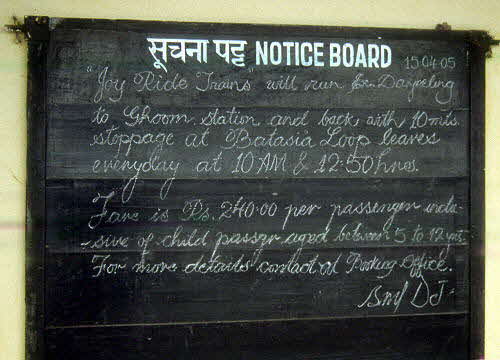 सूचना पट्ट NOTICE BOARD 15·04·05
"Joy Ride Trains" will run Ex. Darjeeling
to Ghoom Station and back with 10 mts.
stoppage at Batasia Loop leaves
everyday at 10 AM & 12·50 hrs.
Fare is Rs. 240·00 per passenger inclu-
-sive of child passgr aged between 5 to 12 yrs.
For more details contact at Booking Office.
DJ